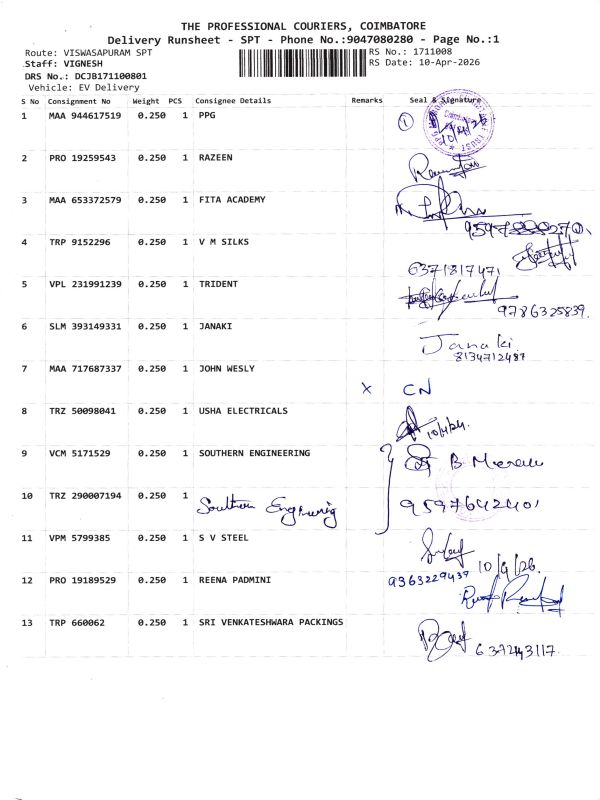 THE PROFESSIONAL COURIERS, COIMBATORE
Delivery Runsheet - SPT - Phone No.:9047080280 - Page No.:1
Route: VISWASAPURAM SPT
RS No.: 1711008
Staff: VIGNESH
RS Date: 10-Apr-2026
DRS No.: DCJB171100801
Vehicle: EV Delivery
S No Consignment No Weight PCS Consignee Details Remarks Seal & Signature
1 MAA 944617519 0.250 1 PPG 1
2 PRO 19259543 0.250 1 RAZEEN
3 MAA 653372579 0.250 1 FITA ACADEMY
4 TRP 9152296 0.250 1 V M SILKS
6371817471
5 VPL 231991239 0.250 1 TRIDENT
9786325839.
6 SLM 393149331 0.250 1 JANAKI Janaki
8134712487
7 MAA 717687337 0.250 1 JOHN WESLY X CN
8 TRZ 50098041 0.250 1 USHA ELECTRICALS
10/4/26.
9 VCM 5171529 0.250 1 SOUTHERN ENGINEERING B
10 TRZ 290007194 0.250 1 Southern Engineering 9597642401
11 VPM 5799385 0.250 1 S V STEEL
10/4/26.
12 PRO 19189529 0.250 1 REENA PADMINI 9363229437
13 TRP 660062 0.250 1 SRI VENKATESHWARA PACKINGS
637243117.